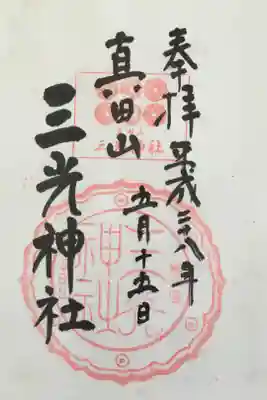 奉拝 平成二十八年
五月十五日
真田山
三光神社